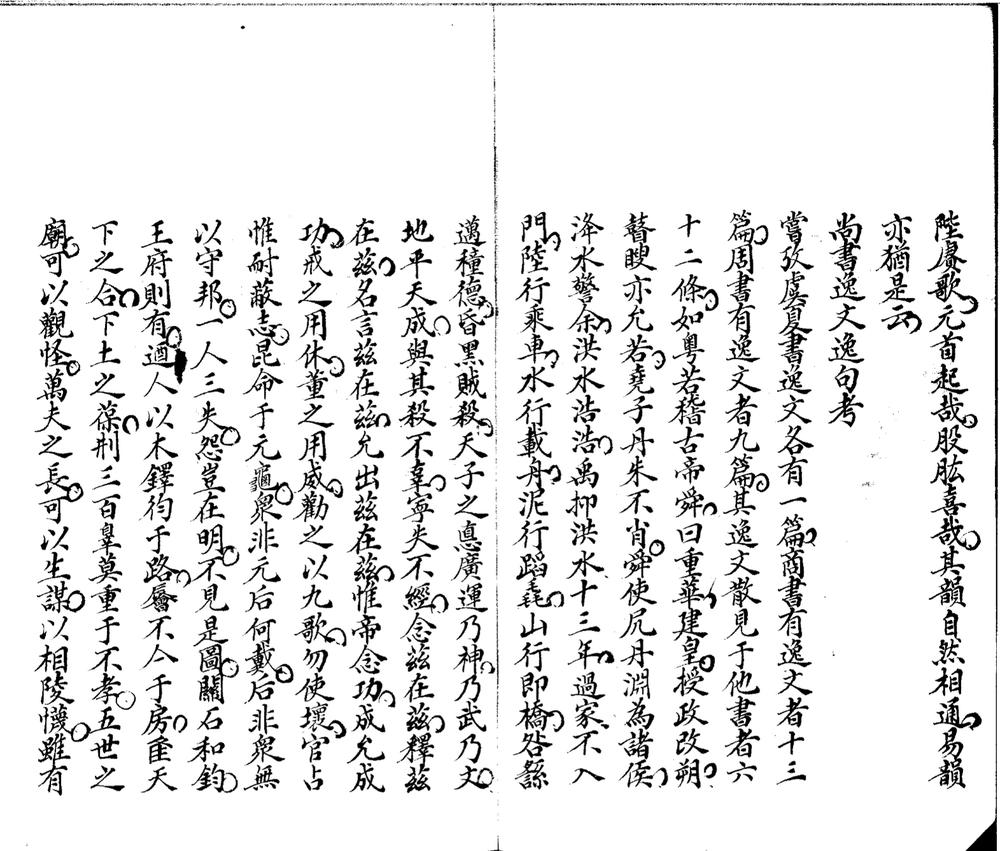 陸賡歌元首起哉股肱喜哉其韻自然相通易韻
亦猶是云
尚書逸文逸句考
嘗攷虞夏書逸文各有一篇商書有逸文者十三
篇周書有逸文者九篇其逸文散見于他書者六
十二條如粵若稽古帝舜曰重華建皇授政改朔
瞽瞍亦允若堯子丹朱不肖舜使凥丹淵為諸侯
洚水警余洪水浩浩禹抑洪水十三年過家不入
門陸行乘車水行載舟泥行蹈毳山行即橋咎繇
邁種德昏黑賊殺天子之悳廣運乃神乃武乃文
地平天成與其殺不辜寧失不經念茲在茲釋茲
在茲名言茲在茲允出茲在茲惟帝念功成允成
功戒之用休董之用威勸之以九歌勿使壞官占
惟耐蔽志昆命于元龜衆非元后何戴后非衆無
以守邦一人三失怨豈在明不見是圖關石和鈞
王府則有遒人以木鐸徇于路辰不亼于房奎天
下之合下土之葆刑三百辠莫重于不孝五世之
廟可以觀怪萬夫之長可以生謀以相陵懱雖有